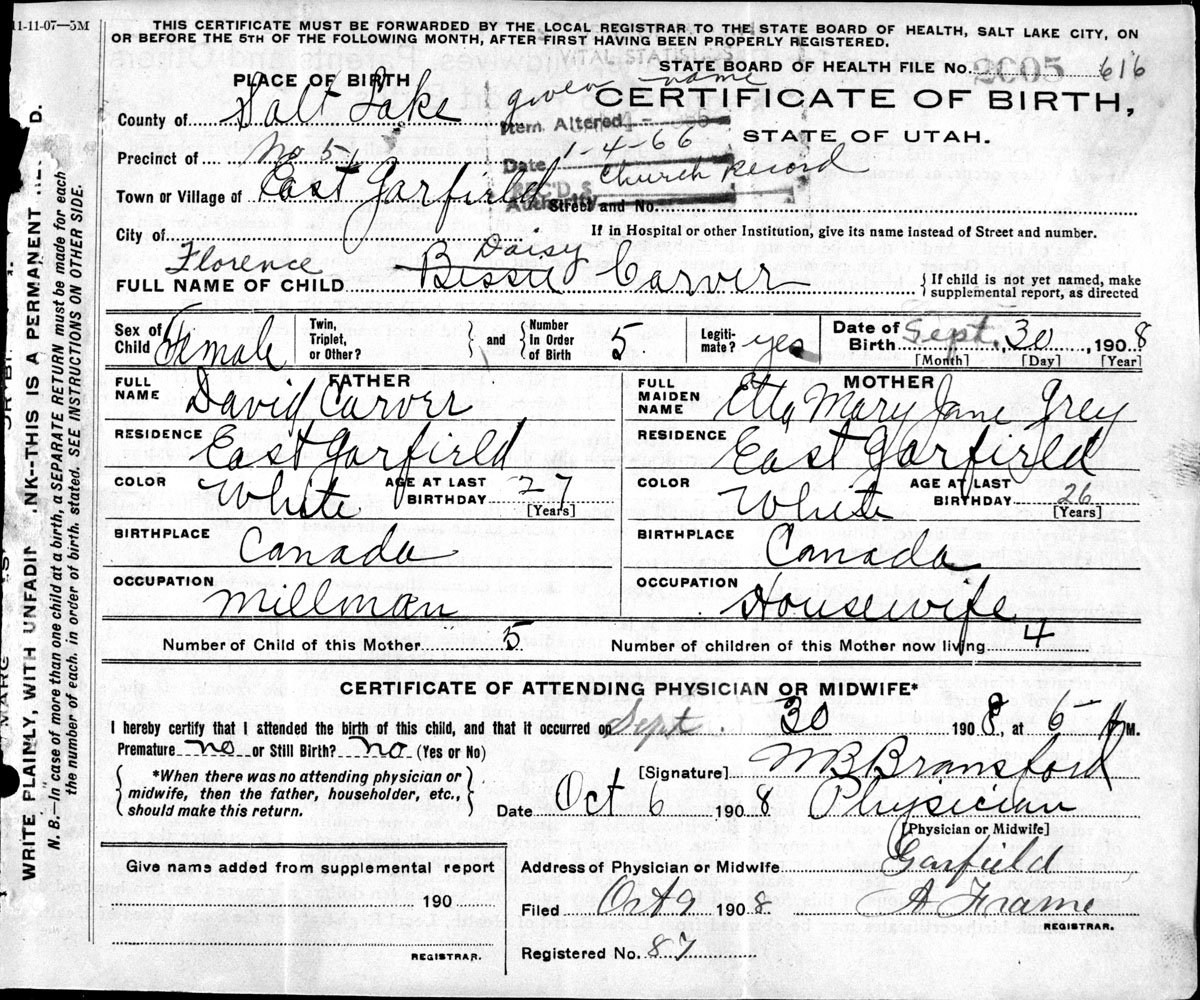 11-11-07—5M
THIS CERTIFICATE MUST BE FORWARDED BY THE LOCAL REGISTRAR TO THE STATE BOARD OF HEALTH, SALT LAKE CITY, ON
OR BEFORE THE 5TH OF THE FOLLOWING MONTH, AFTER FIRST HAVING BEEN PROPERLY REGISTERED.
STATE BOARD OF HEALTH FILE No. 2605 616
PLACE OF BIRTH
given name
CERTIFICATE OF BIRTH,
County of Salt Lake
Item Altered
STATE OF UTAH.
Precinct of No 5
Date 1-4-66
Church Record
Town or Village of East Garfield
REC'D. S
Authority
Street and No.
City of
If in Hospital or other Institution, give its name instead of Street and number.
Florence Daisy
FULL NAME OF CHILD Bessie Carver
{ If child is not yet named, make
supplemental report, as directed
Sex of Child Female
Twin, Triplet, or Other? } and { Number In Order of Birth 5
Legiti-mate? yes
Date of Birth Sept. 30, 1908
[Month] [Day] [Year]
FATHER
FULL NAME David Carver
MOTHER
FULL MAIDEN NAME Etta Mary Jane Grey
RESIDENCE East Garfield
RESIDENCE East Garfield
COLOR White AGE AT LAST BIRTHDAY 27 [Years]
COLOR White AGE AT LAST BIRTHDAY 26 [Years]
BIRTHPLACE Canada
BIRTHPLACE Canada
OCCUPATION Millman
OCCUPATION Housewife
Number of Child of this Mother 5
Number of children of this Mother now living 4
CERTIFICATE OF ATTENDING PHYSICIAN OR MIDWIFE*
I hereby certify that I attended the birth of this child, and that it occurred on Sept. 30 1908, at 6 A M.
Premature no or Still Birth? no (Yes or No)
{ *When there was no attending physician or
midwife, then the father, householder, etc.,
should make this return. }
[Signature] W B Bransford
Date Oct 6 1908 Physician
[Physician or Midwife]
Give name added from supplemental report
190
REGISTRAR.
Address of Physician or Midwife Garfield
Filed Oct 9 1908 A Frame
REGISTRAR.
Registered No. 87
WRITE PLAINLY, WITH UNFADIN NK--THIS IS A PERMANENT RE D.
N. B.—In case of more than one child at a birth, a SEPARATE RETURN must be made for each
the number of each. in order of birth. stated. SEE INSTRUCTIONS ON OTHER SIDE.